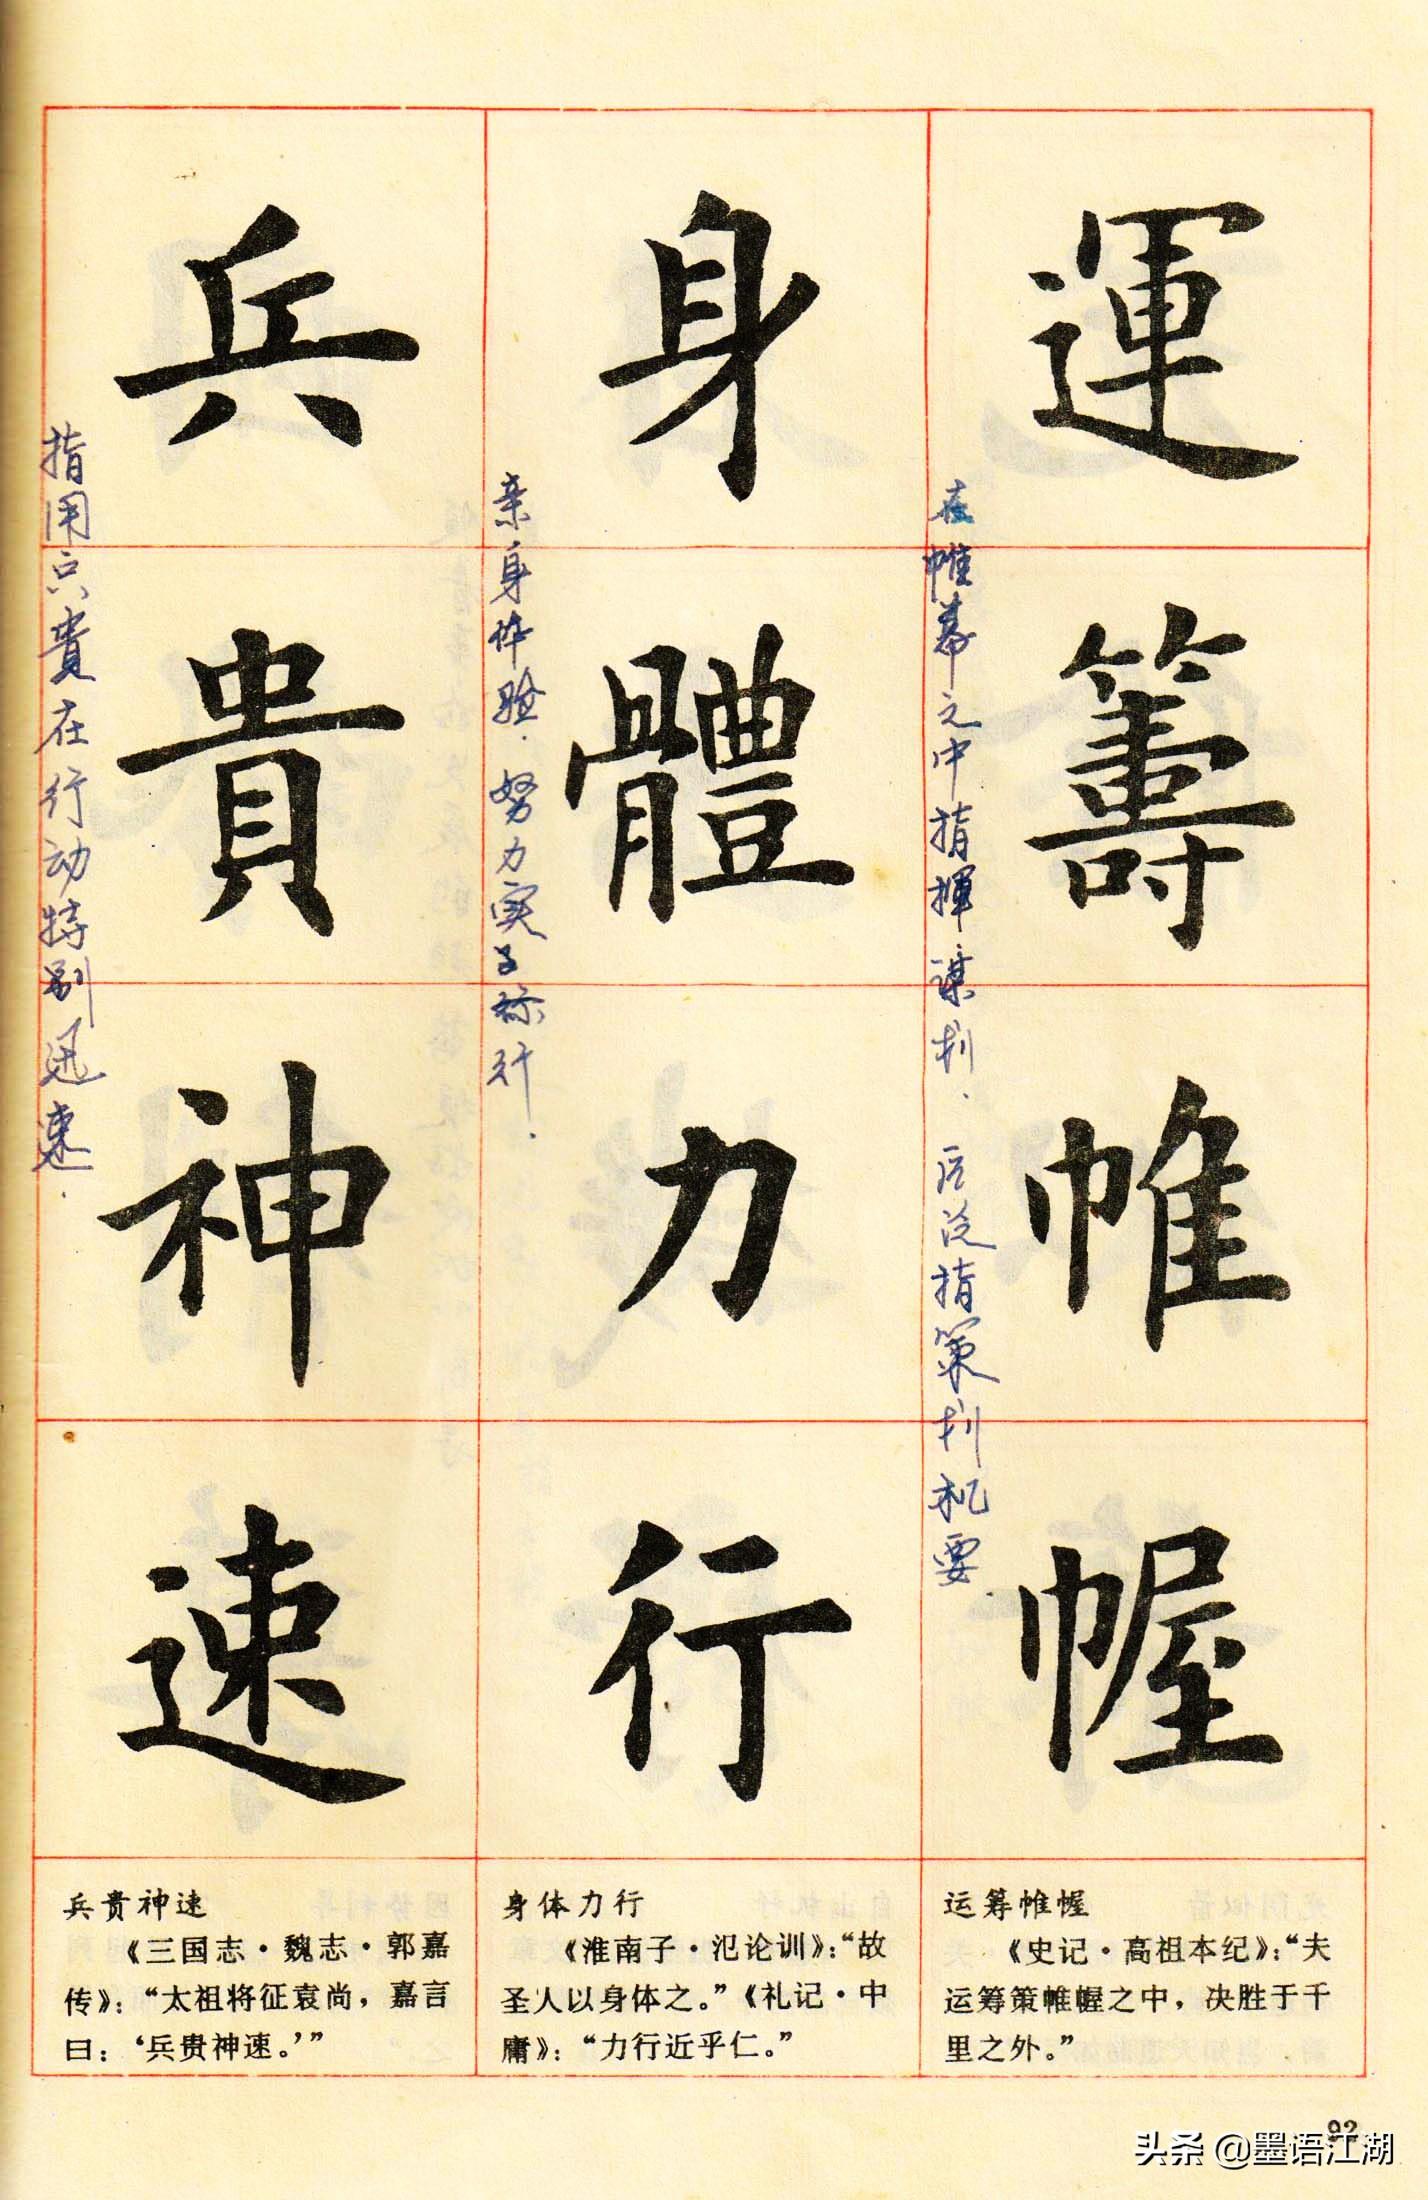 運籌帷幄
在帷幕之中指揮谋划.后泛指策划机要.
身體力行
亲身体验.努力实行.
兵貴神速
指用兵貴在行动特别迅速.
运筹帷幄
《史记·高祖本纪》:“夫
运筹策帷幄之中,决胜于千
里之外。”
身体力行
《淮南子·氾论训》:“故
圣人以身体之。”《礼记·中
庸》:“力行近乎仁。”
兵贵神速
《三国志·魏志·郭嘉
传》:“太祖将征袁尚,嘉言
曰:‘兵贵神速。’”
92
头条 @墨语江湖